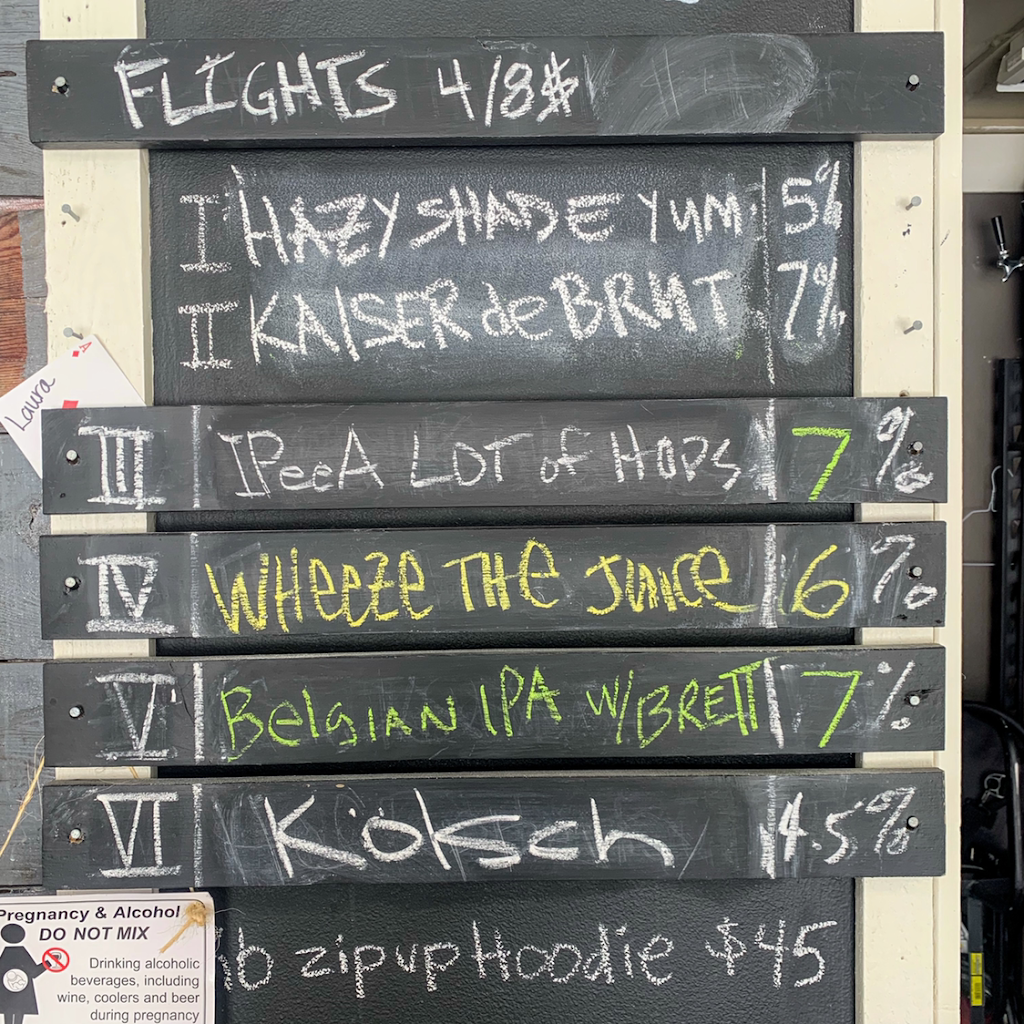 FLIGHTS 4/8$
I HAZY SHADE YUM 5%
II KAISER de BRUT 7%
III IPeeA LOT of HOPS 7%
Laura
A
IV WHEEZE THE JUICE 6%
V BelgiAN IPA W/BRETT 7%
VI Kölsch 4.5%
zip up Hoodie $45
Pregnancy & Alcohol
DO NOT MIX
Drinking alcoholic
beverages, including
wine, coolers and beer
during pregnancy